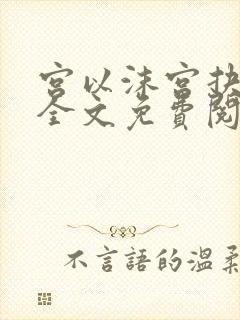 宮以沫宮抉
全文免費閱
不言語的溫柔